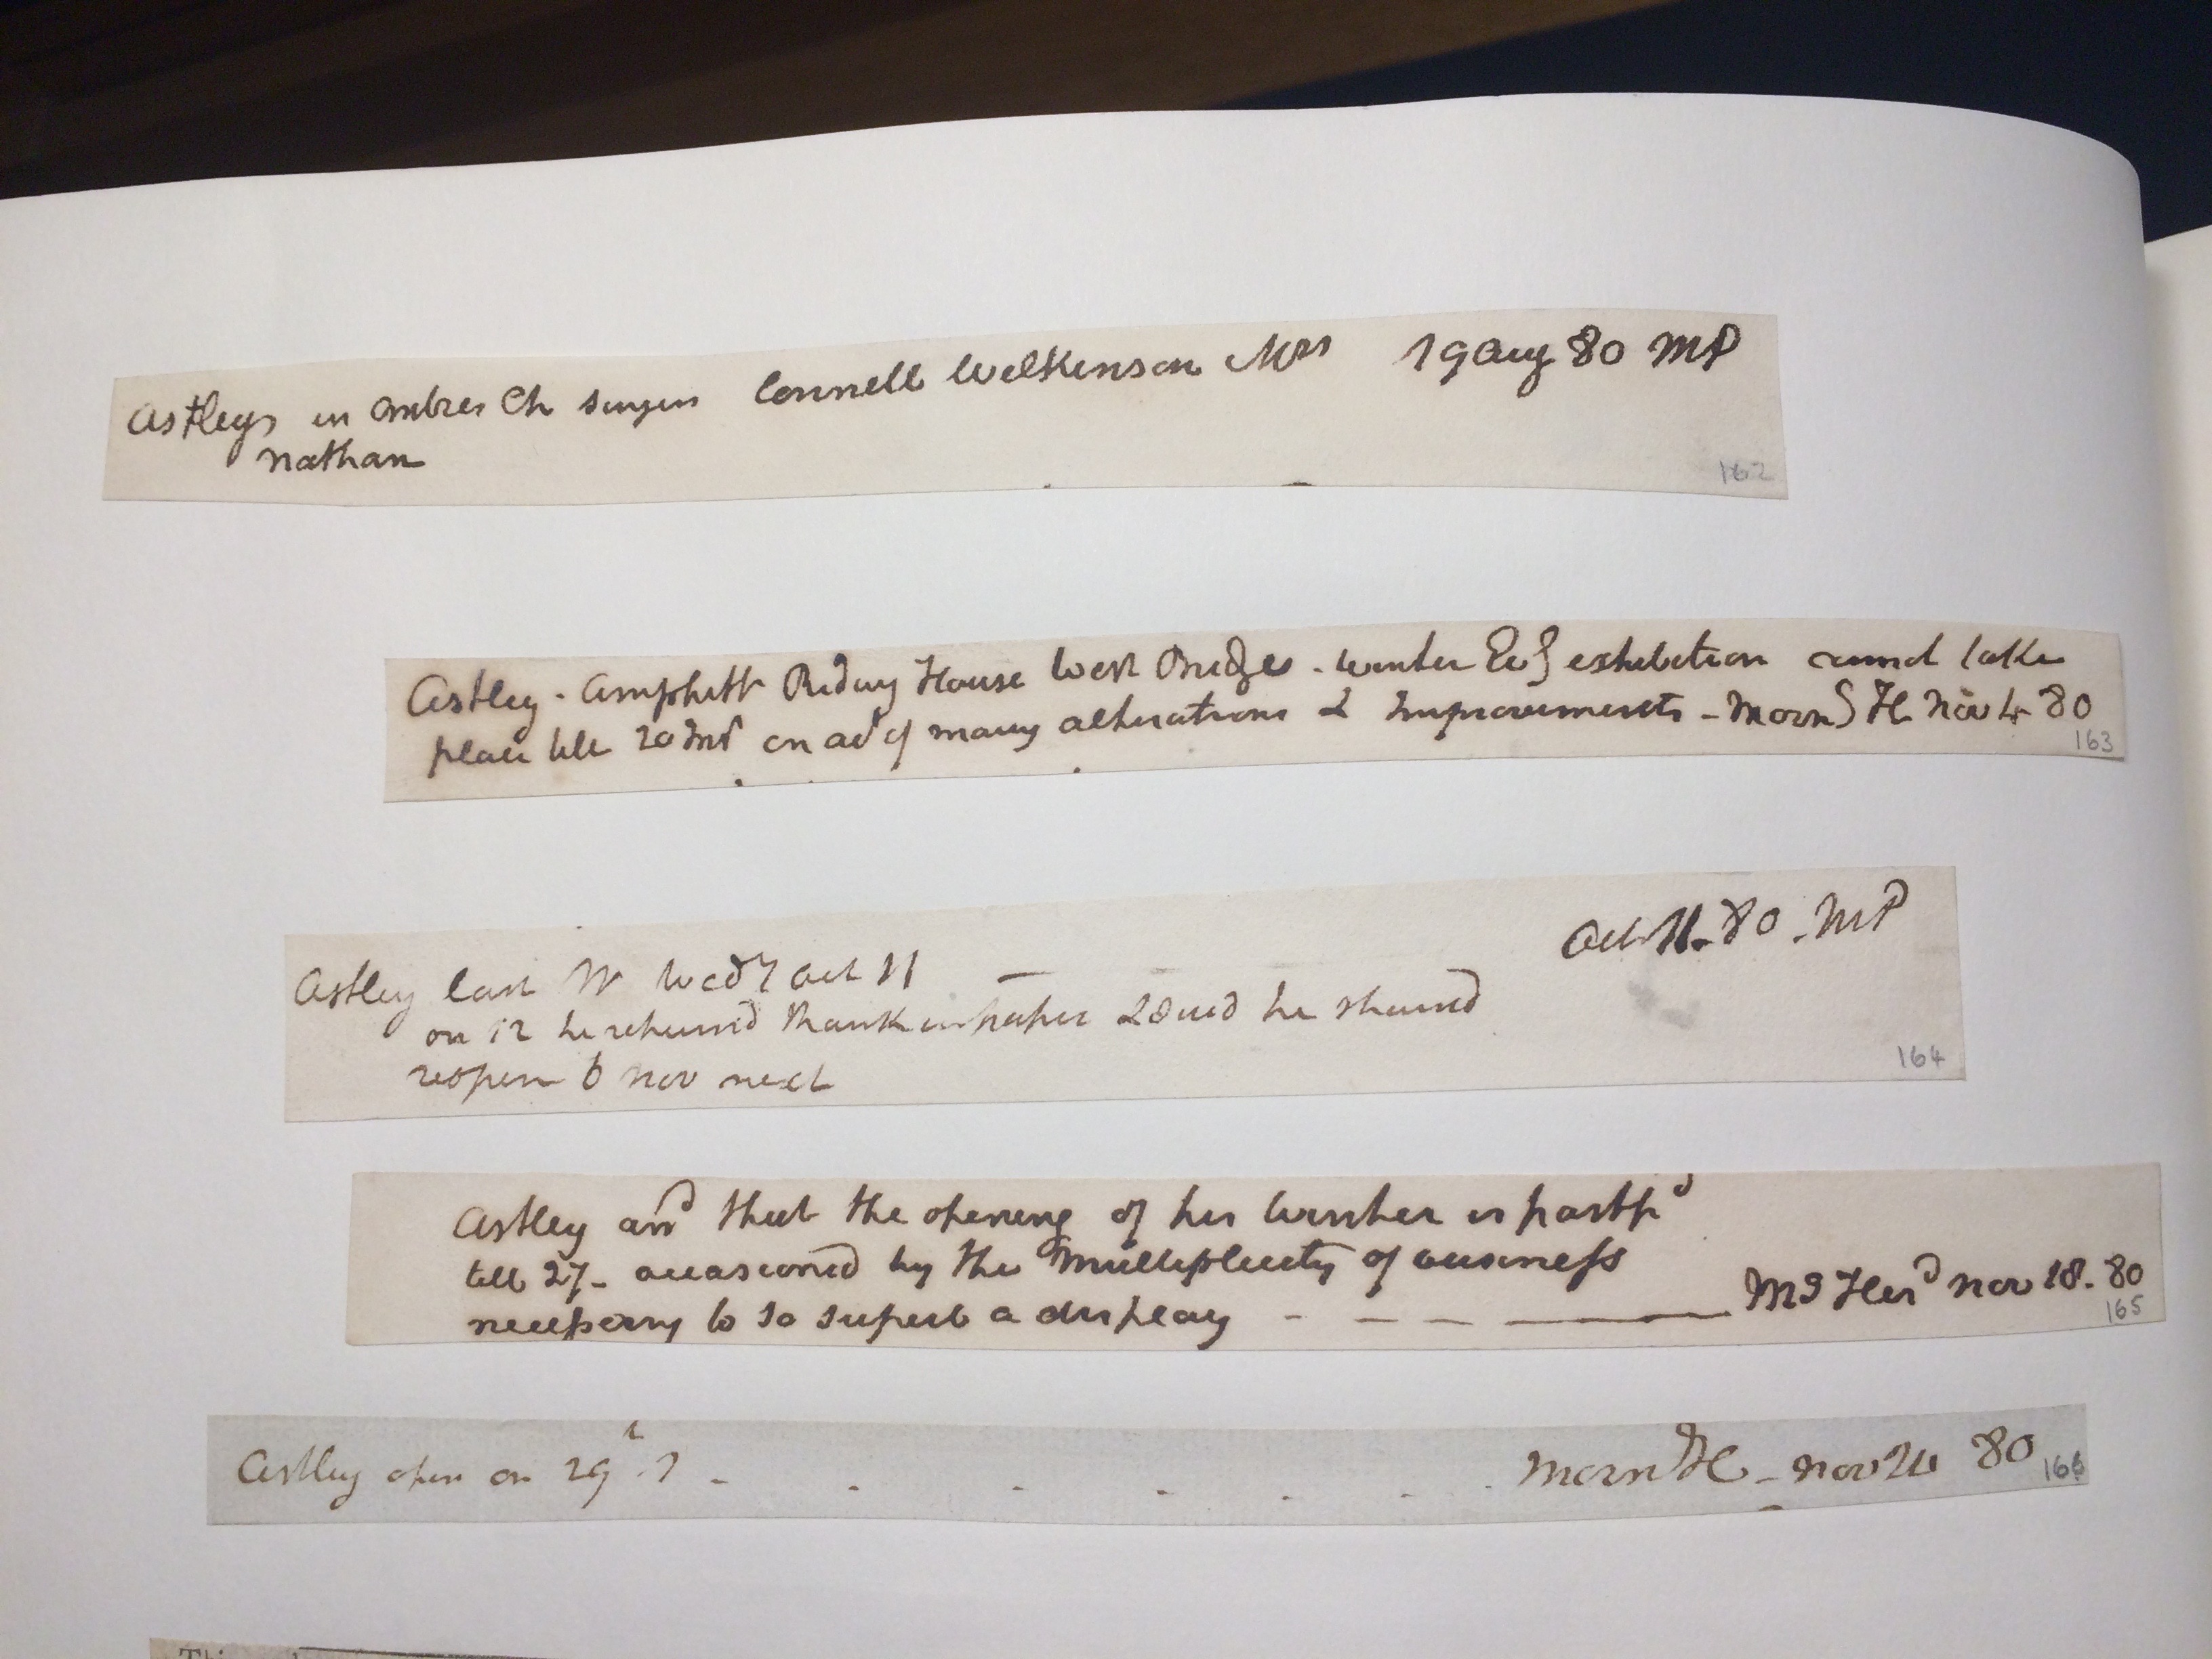 Astleys in Ombres Ch singers Connell Wilkinson Mrs 19 Aug 80 MP
Nathan
162
Astley - Amphitt Riding House West Bridge - winter Evg exhibition cannot take
place till 20 Inst on acct of many alterations & Improvements - Morng H Nov 4 80
163
Astley last Wedy Oct 11 Oct 11 - 80 - MP
on 12 he returned thank in paper & said he should
reopen 6 Nov next
164
Astley annd that the opening of his Winter is postpd
till 27 - occasioned by the Multiplicity of business
necessary to so superb a display - - - — Mg Herd Nov 18 - 80
165
Astley open on 29th - Morn H - Nov 24 80
166